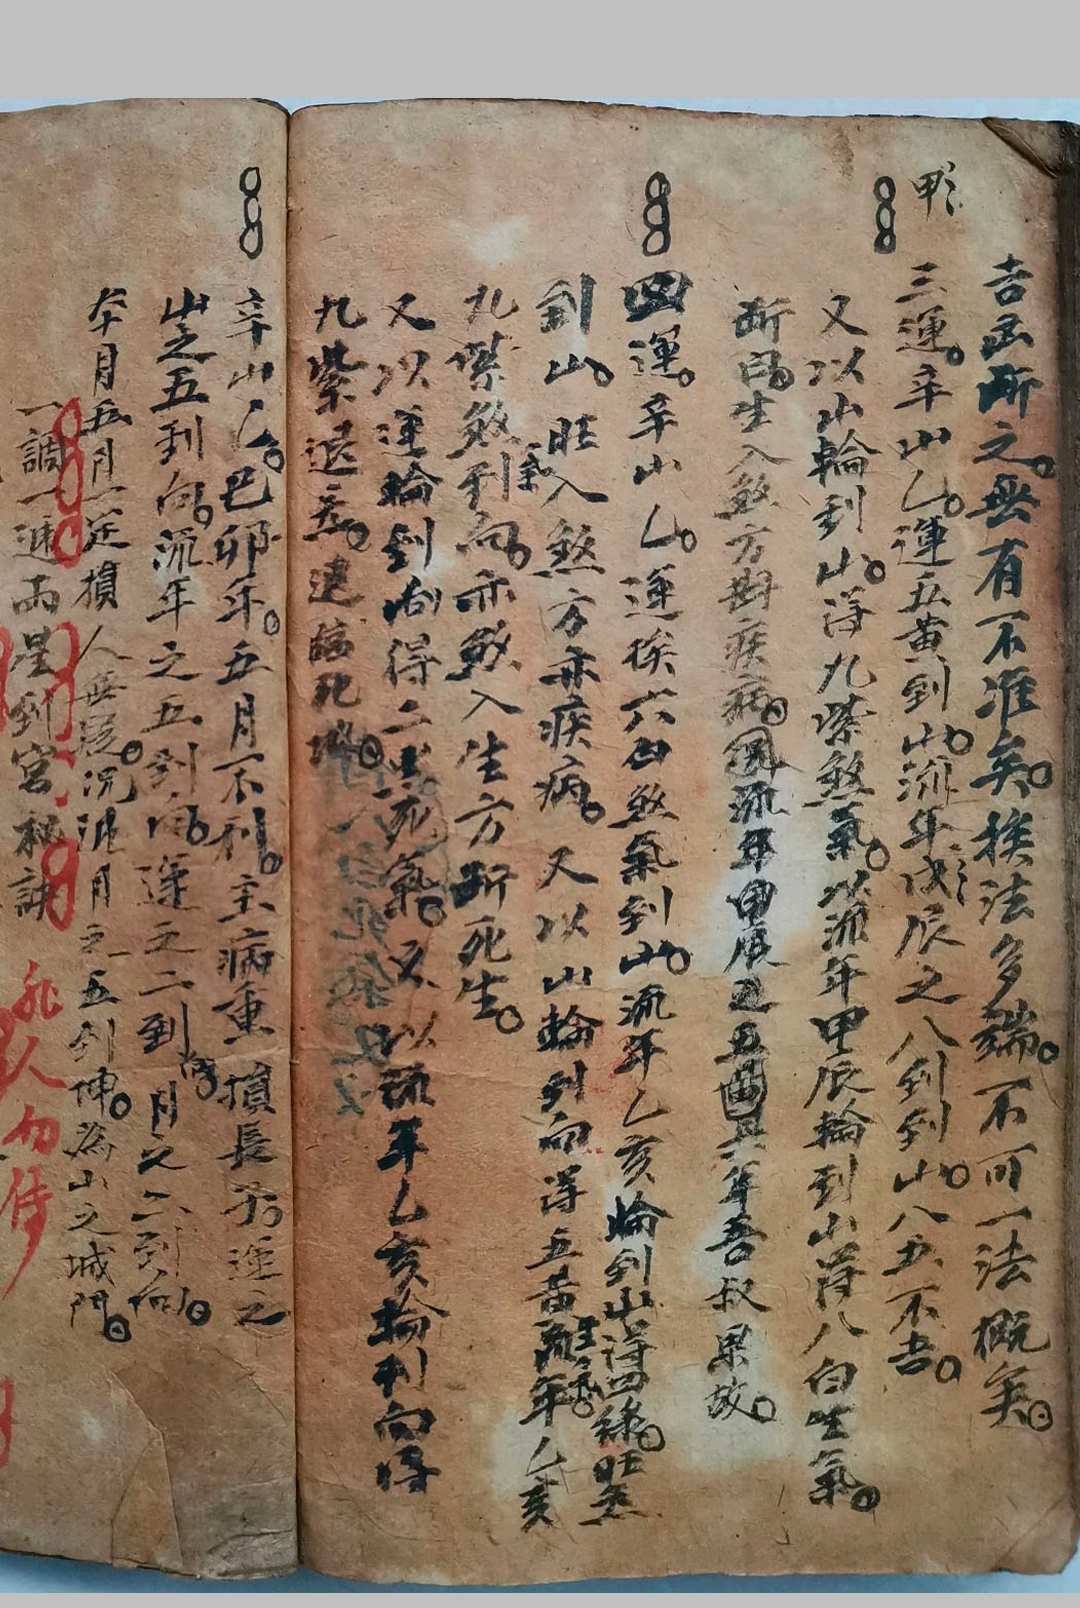 吉凶断之。無有不准矣。挨法多端。不可一法概矣。
甲
三運。辛山乙。運五黄到山。流年戊辰之八到到山。八五不吉。
又以山輪到山。得九紫煞氣。以流年甲辰輪到山得八白生氣。
断曰。生入煞方斟疾病。因流年甲辰之五年吾叔果故。
四運。辛山乙。運挨六白煞氣到山。流年乙亥輪到山得四緑。旺氣
到山。旺入煞方亦疾病。又以山輪到向得五黄旺氣。流年乙亥
九紫煞到向。亦煞入生方断死生。
又以運輪到向得二黑死氣。又以流年乙亥輪到向得
九紫退氣。建臨死地。
辛山乙。巳卯年。五月不利。主病重損長子。運之
山之五到向。流年之五到向。運之二到向。月之二到向。
本月五月一定損人無疑。况汜月之五到坤。為山之城門。
一調一遞両星到宮秘訣
非人勿传